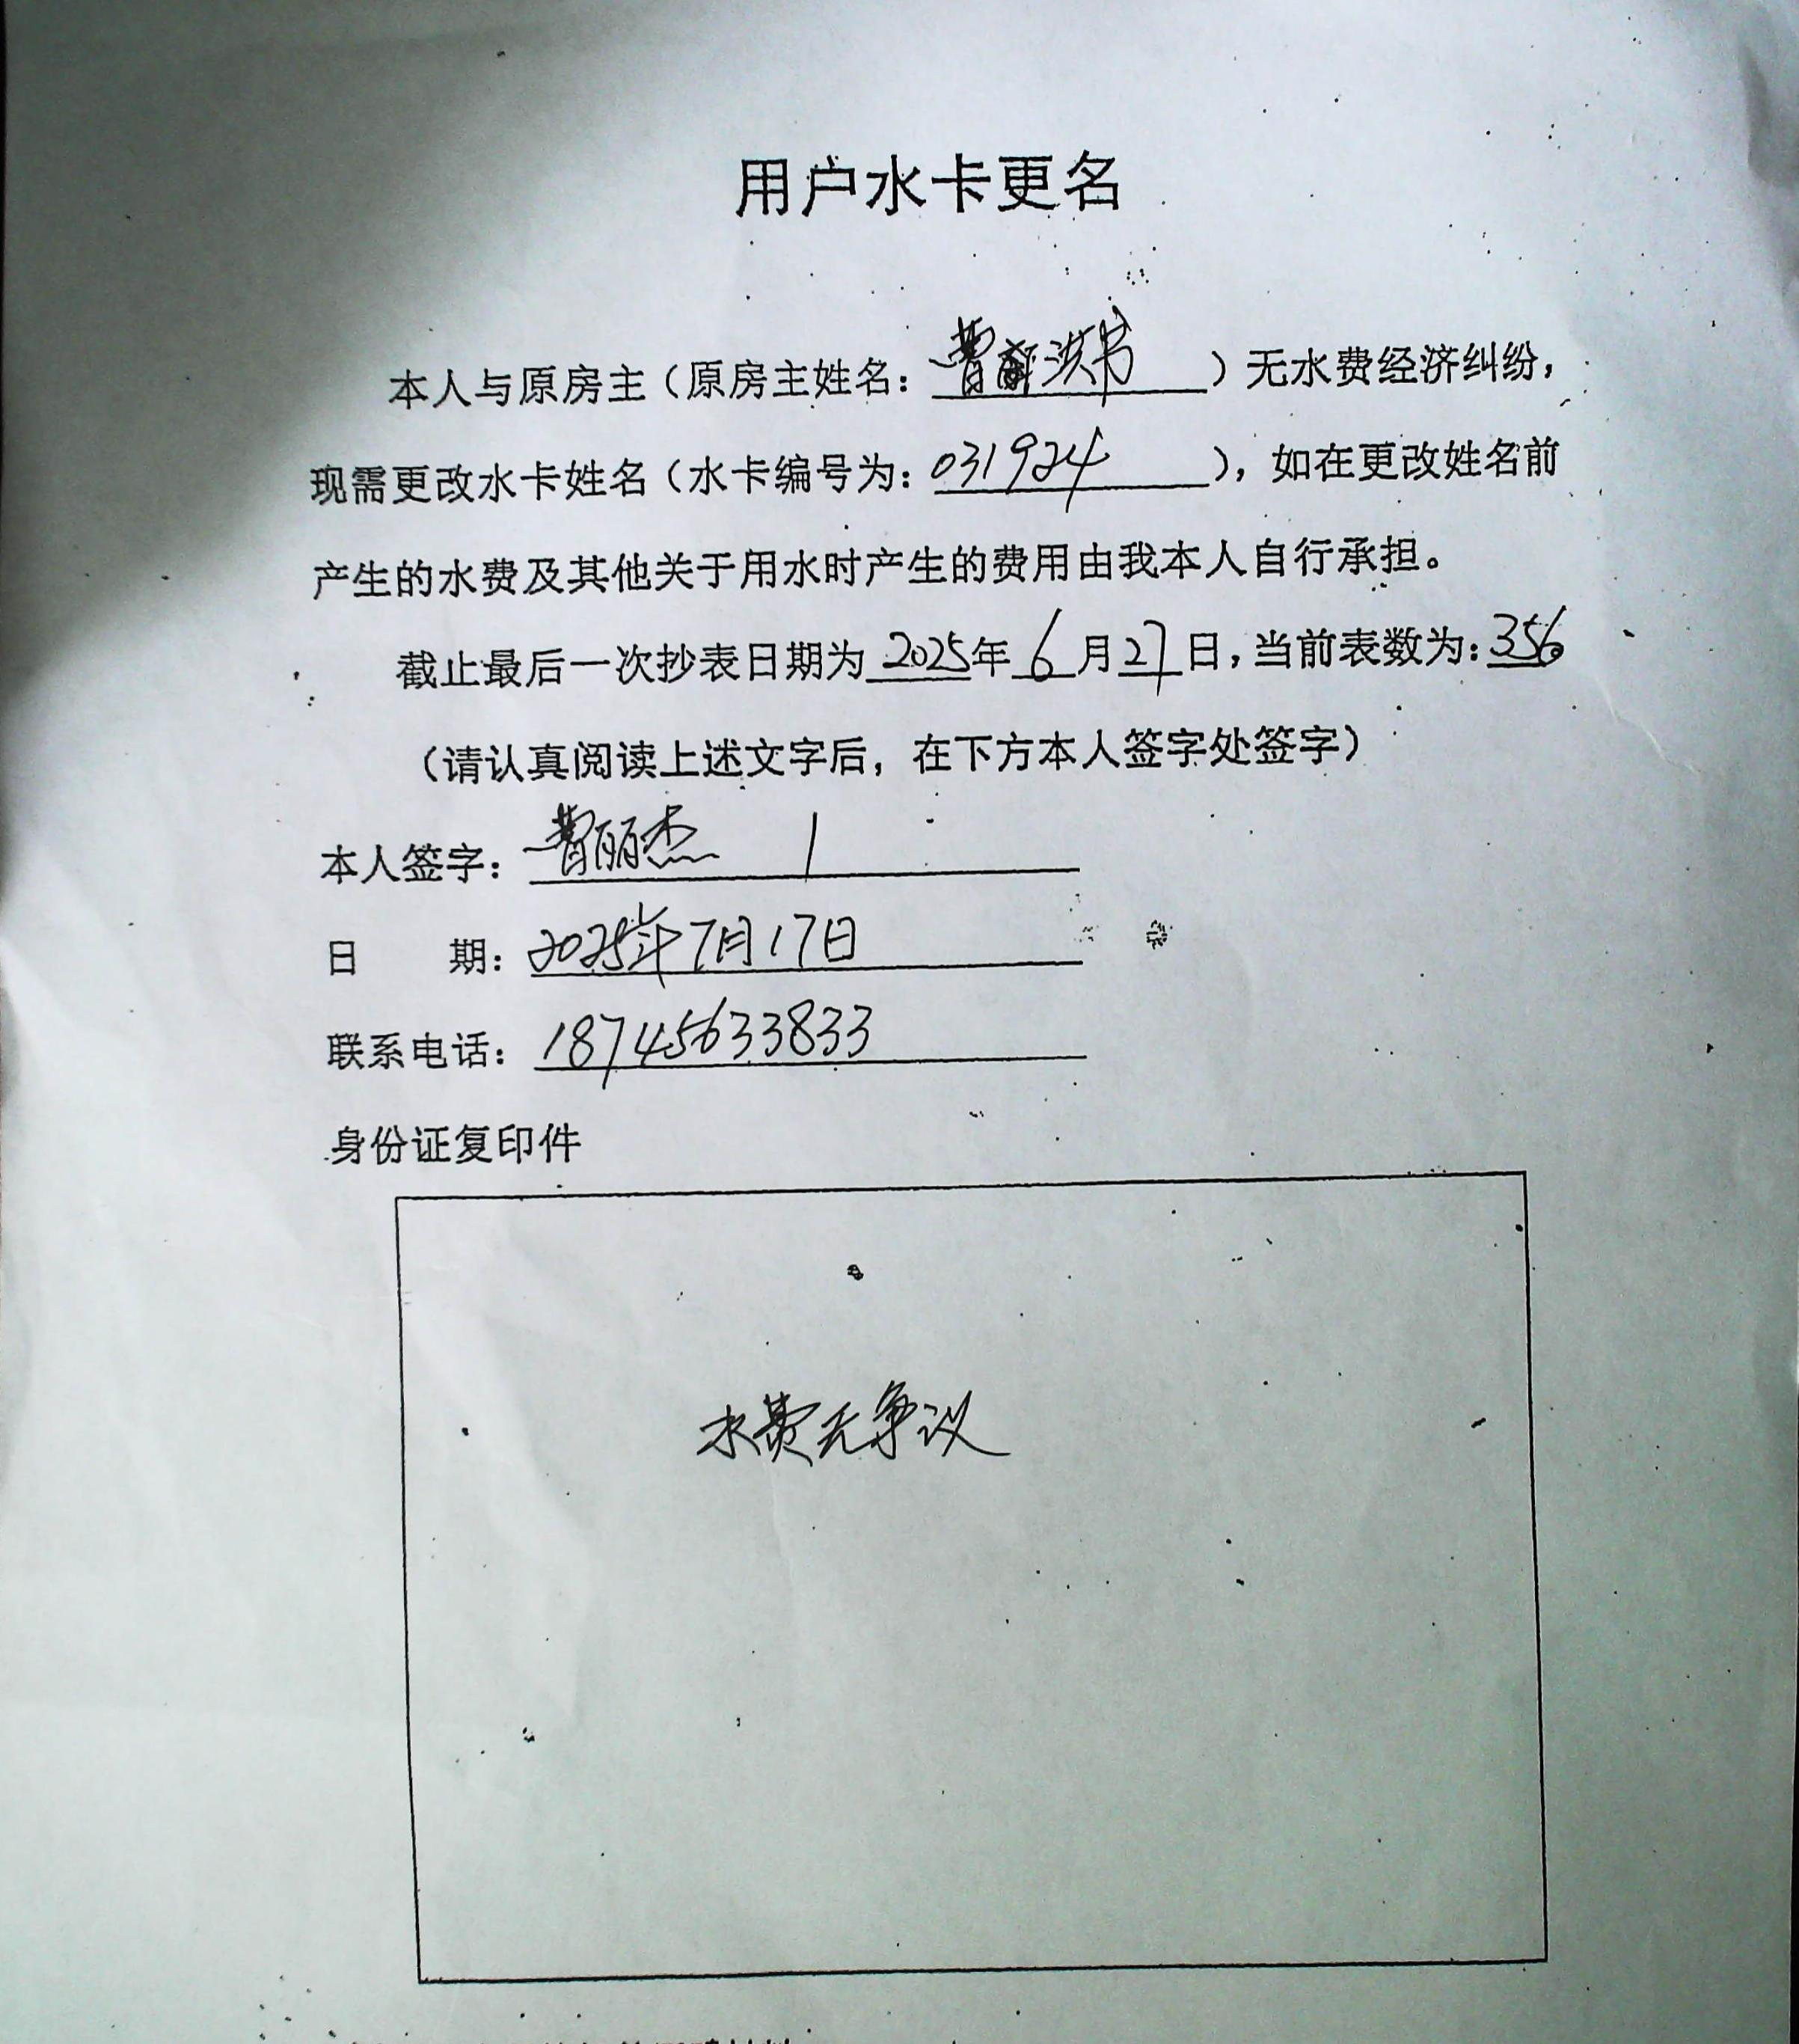 用户水卡更名
本人与原房主（原房主姓名：曹洪书）无水费经济纠纷，
现需更改水卡姓名（水卡编号为：031924），如在更改姓名前
产生的水费及其他关于用水时产生的费用由我本人自行承担。
截止最后一次抄表日期为2025年6月27日，当前表数为：356
（请认真阅读上述文字后，在下方本人签字处签字）
本人签字：曹丽杰
日 期：2025年7月17日
联系电话：18745633833
身份证复印件
水费无争议